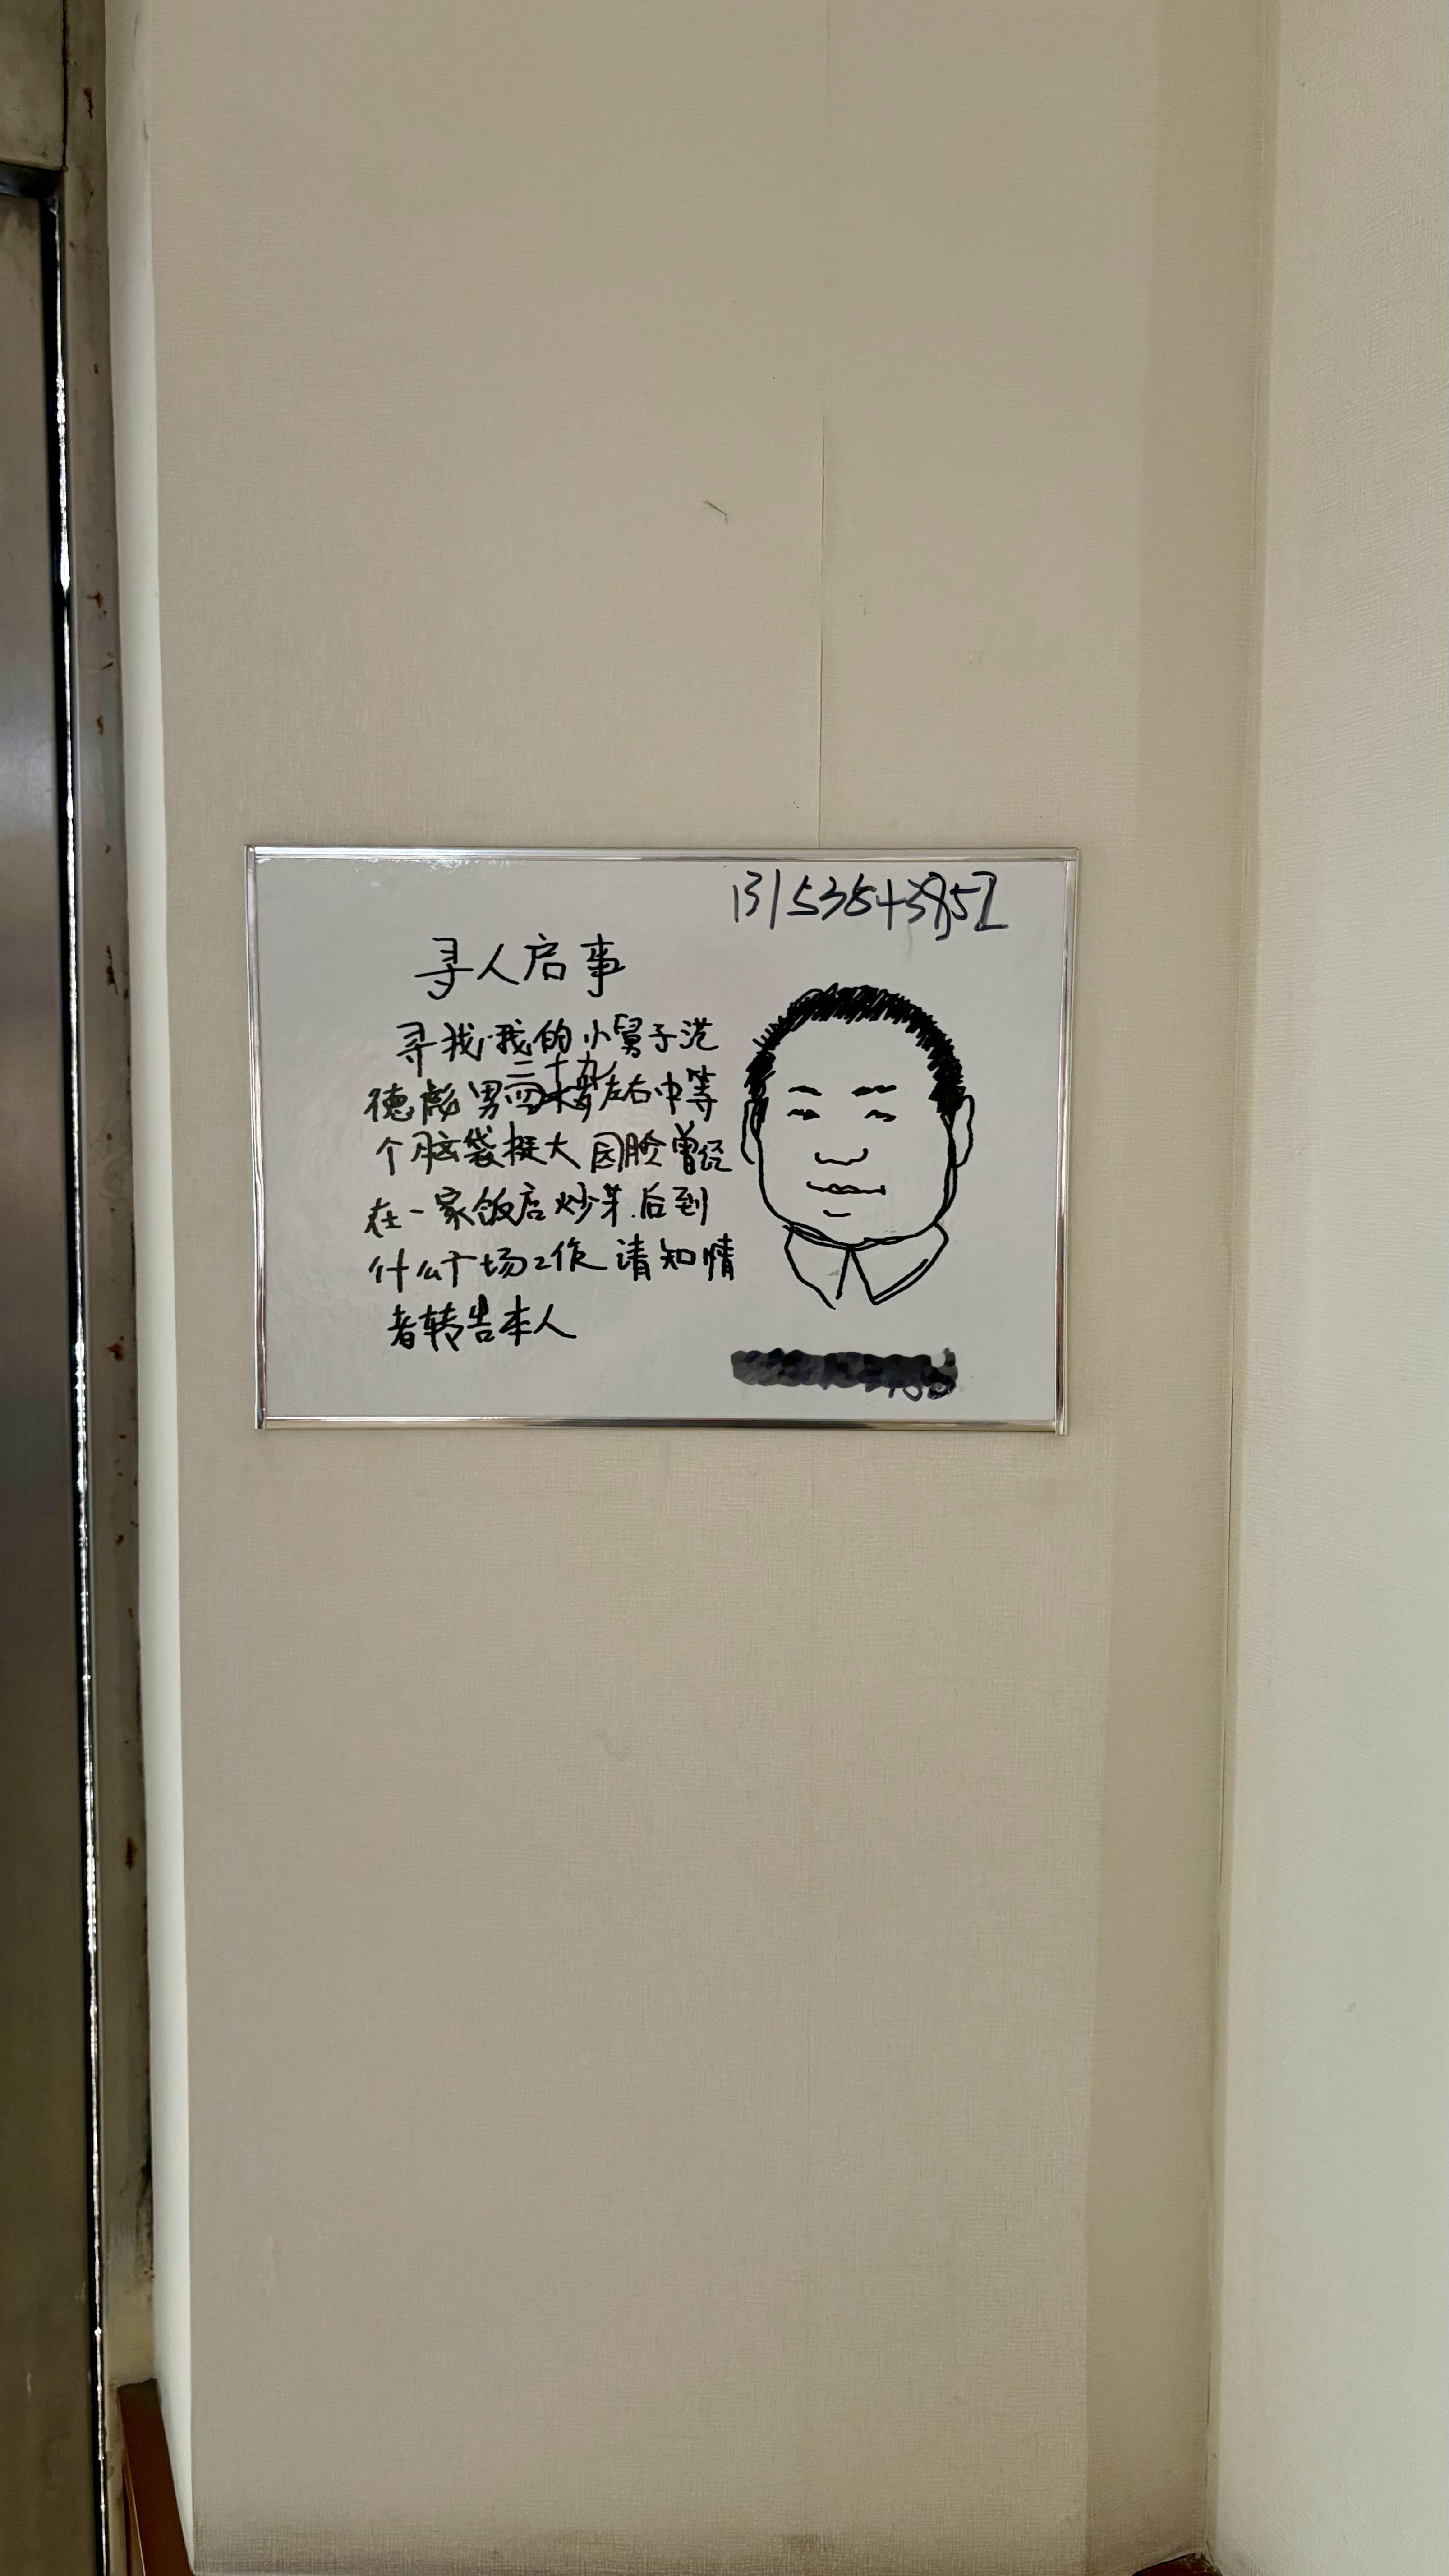 寻人启事
寻找我的小舅子范
德彪男三十九左右中等
个脑袋挺大园脸曾经
在一家饭店炒菜.后到
什么干场工作请知情
者转告本人